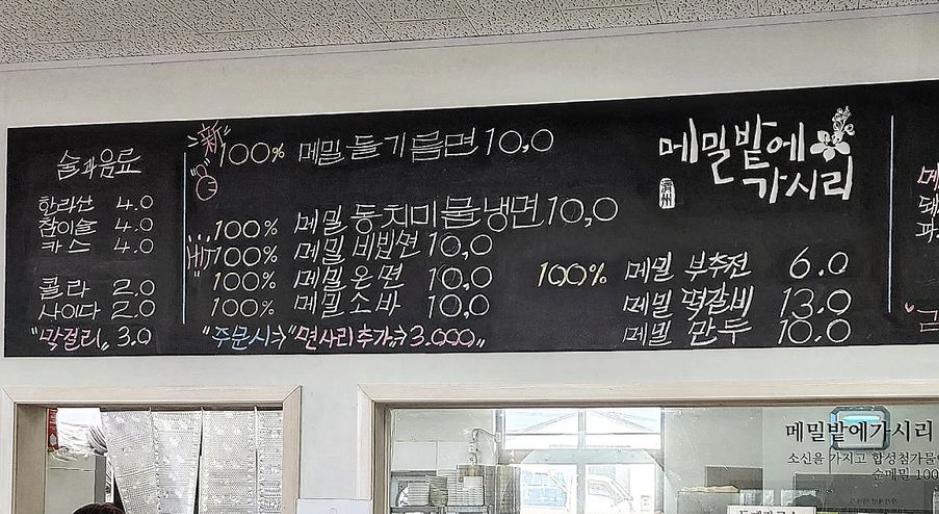 술과음료
한라산 4.0
참이슬 4.0
카스 4.0
콜라 2.0
사이다 2.0
"막걸리" 3.0
新
100% 메밀 들기름면 10,0
100% 메밀 동치미물냉면 10,0
HIT 100% 메밀 비빔면 10,0
100% 메밀온면 10,0
100% 메밀소바 10,0
"주문시→" 면사리추가→3.000"
메밀밭에
가시리
100% 메밀 부추전 6.0
메밀 떡갈비 13.0
메밀 만두 10.0
메밀밭에가시리
소신을 가지고 합성첨가물
순메밀 100